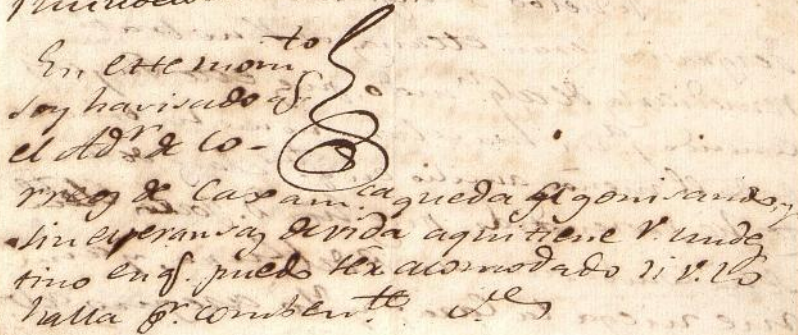 En este mom.to
soy havisado q.e
el Adr. de Co-
rreos de Caxam.ca queda agonisando, y
sin esperansas de vida aqui tiene V. un des
tino en q.e puede ser acomodado si V. lo
halla pr. combente.